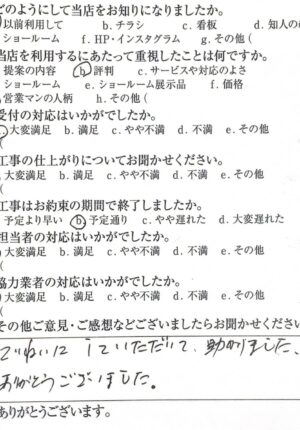 どのようにして当店をお知りになりましたか。
以前利用して b. チラシ c. 看板 d. 知人の
ショールーム f. HP・インスタグラム g. その他(
当店を利用するにあたって重視したことは何ですか。
提案の内容 b. 評判 c. サービスや対応のよさ
ショールーム e. ショールーム展示品 f. 価格
営業マンの人柄 h. その他(
受付の対応はいかがでしたか。
大変満足 b. 満足 c. やや不満 d. 不満 e. その他
(
工事の仕上がりについてお聞かせください。
大変満足 b. 満足 c. やや不満 d. 不満 e. その他
(
工事はお約束の期間で終了しましたか。
予定より早い b. 予定通り c. やや遅れた d. 大変遅れた
担当者の対応はいかがでしたか。
大変満足 b. 満足 c. やや不満 d. 不満 e. その他
(
協力業者の対応はいかがでしたか。
大変満足 b. 満足 c. やや不満 d. 不満 e. その他
(
その他ご意見・ご感想などございましたらお聞かせください
ていねいにしていただいて、助かりました、
ありがとうございました。
ありがとうございます。